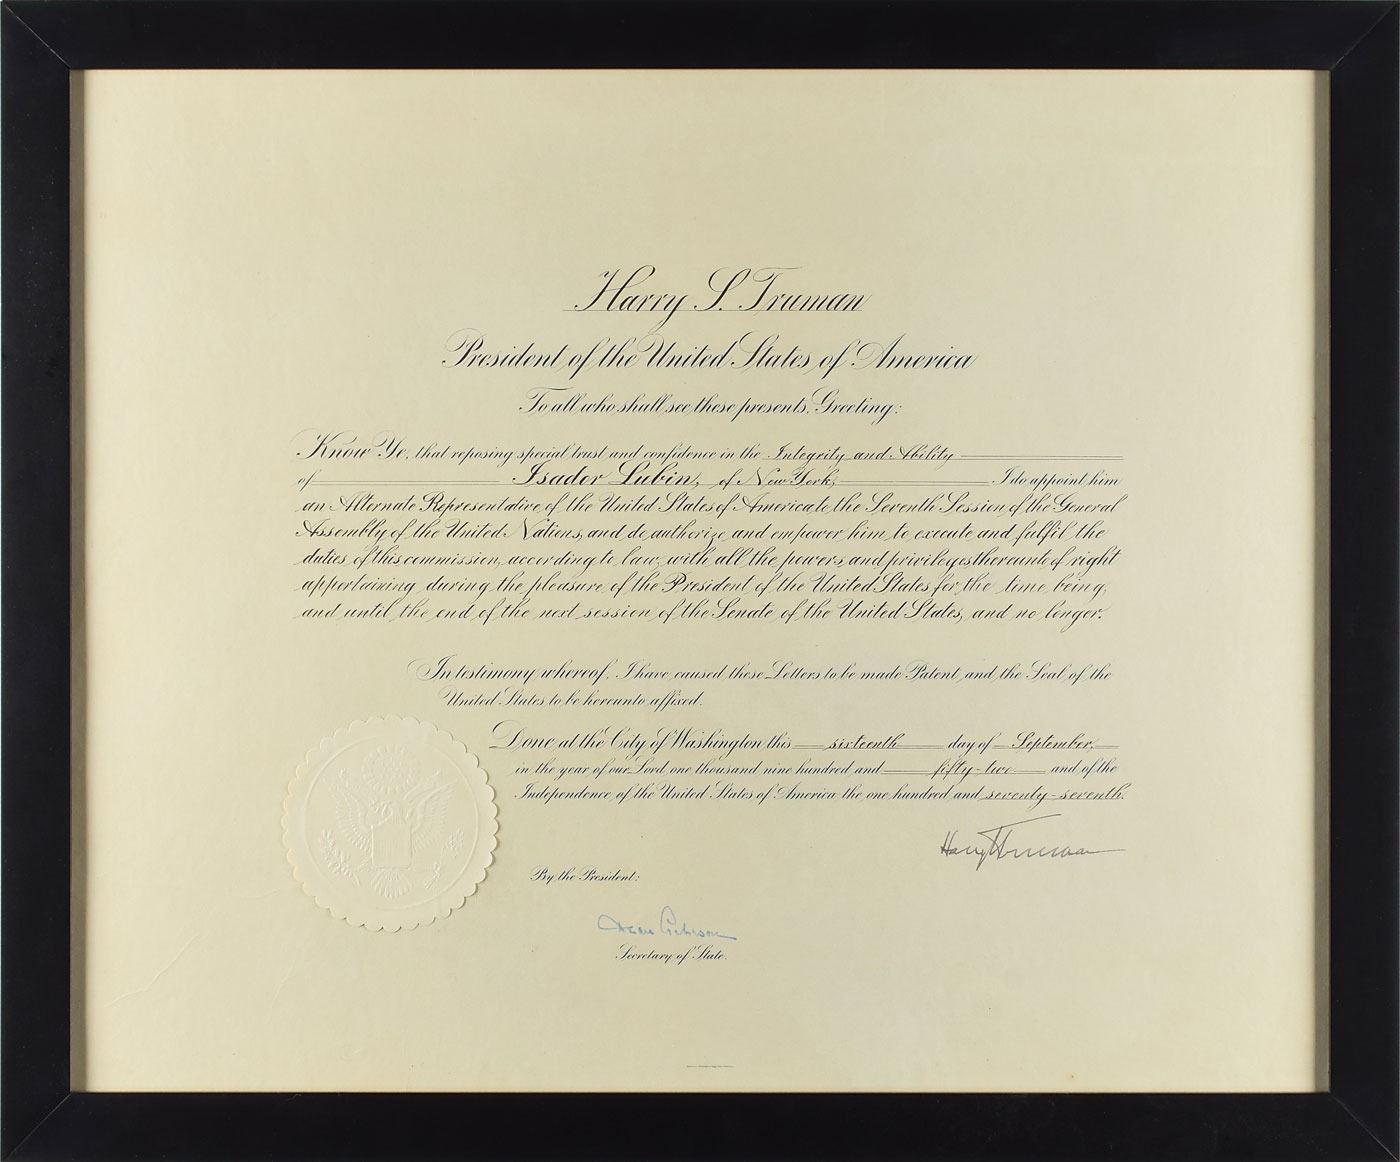 Harry S. Truman
President of the United States of America
To all who shall see these presents, Greeting:
Know Ye, that reposing special trust and confidence in the Integrity and Ability
of Isador Lubin, of New York, I do appoint him
an Alternate Representative of the United States of America to the Seventh Session of the General
Assembly of the United Nations, and do authorize and empower him to execute and fulfil the
duties of this commission, according to law, with all the powers and privileges thereunto of right
appertaining during the pleasure of the President of the United States for the time being,
and until the end of the next session of the Senate of the United States, and no longer.
In testimony whereof, I have caused these Letters to be made Patent and the Seal of the
United States to be hereunto affixed.
Done at the City of Washington this sixteenth day of September,
in the year of our Lord one thousand nine hundred and fifty-two and of the
Independence of the United States of America the one hundred and seventy-seventh.
Harry Truman
By the President:
Dean Acheson
Secretary of State.